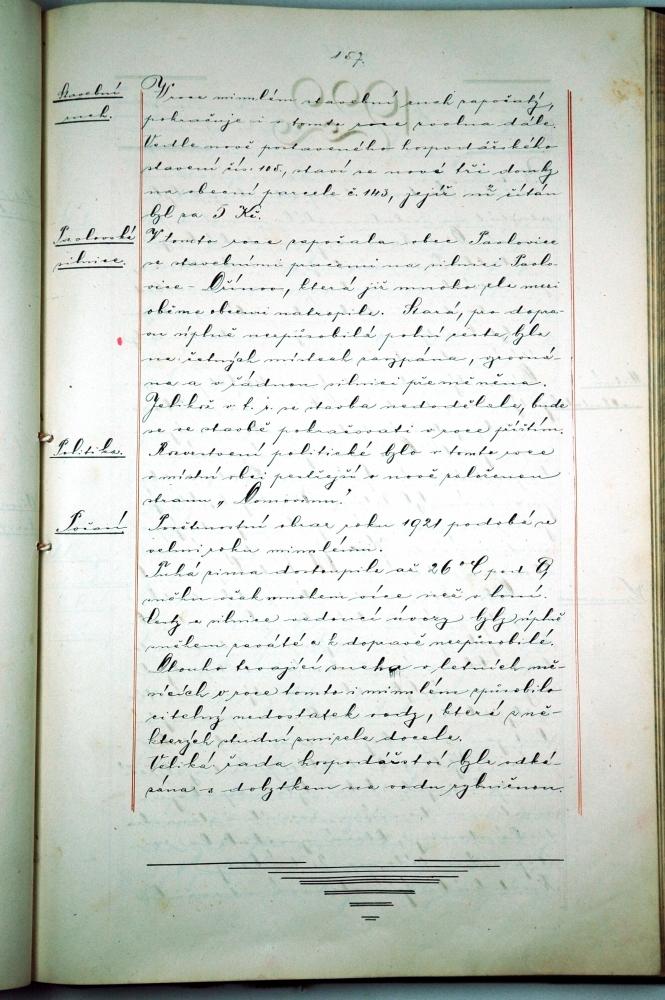 157.
Stavební
ruch.
V roce minulém stavební ruch započatý,
pokračuje i v tomto roce zvolna dále.
Vedle nově postaveného hospodářského
stavení čís. 105, staví se nové tři domky
na obecní parcele č. 143, jejíž m² čítán
byl za 5 Kč.
Pavlovská
silnice.
V tomto roce započala obec Pavlovice
se stavebními pracemi na silnici Pavlo-
vice - Dřínov, která již mnoho zla mezi
oběma obcemi natropila. Stará, pro dopra-
vu úplně nezpůsobilá polní cesta, byla
na četných místech rozšířena, srovná-
na a v řádnou silnici přeměněna.
Jelikož v t. r. se stavba nedodělala, bude
se ve stavbě pokračovati v roce příštím.
Politika.
Rozvrstvení politické bylo v tomto roce
v místní obci pestřejší o nově založenou
stranu „Domovinu."
Počasí
Povětrnostní obraz roku 1921 podobá se
velmi roku minulému.
Tuhá zima dostoupila až 26° C pod 0,
sněhu však mnohem více než v loni.
Cesty a silnice vedoucí úvozy byly úplně
sněhem zaváté a k dopravě nezpůsobilé.
Dlouho trvající sucha v letních mě-
sících v roce tomto i minulém způsobilo
citelný nedostatek vody, která z ně-
kterých studní zmizela docela.
Veliká řada hospodářství byla odká-
zána s dobytkem na vodu rybničnou.